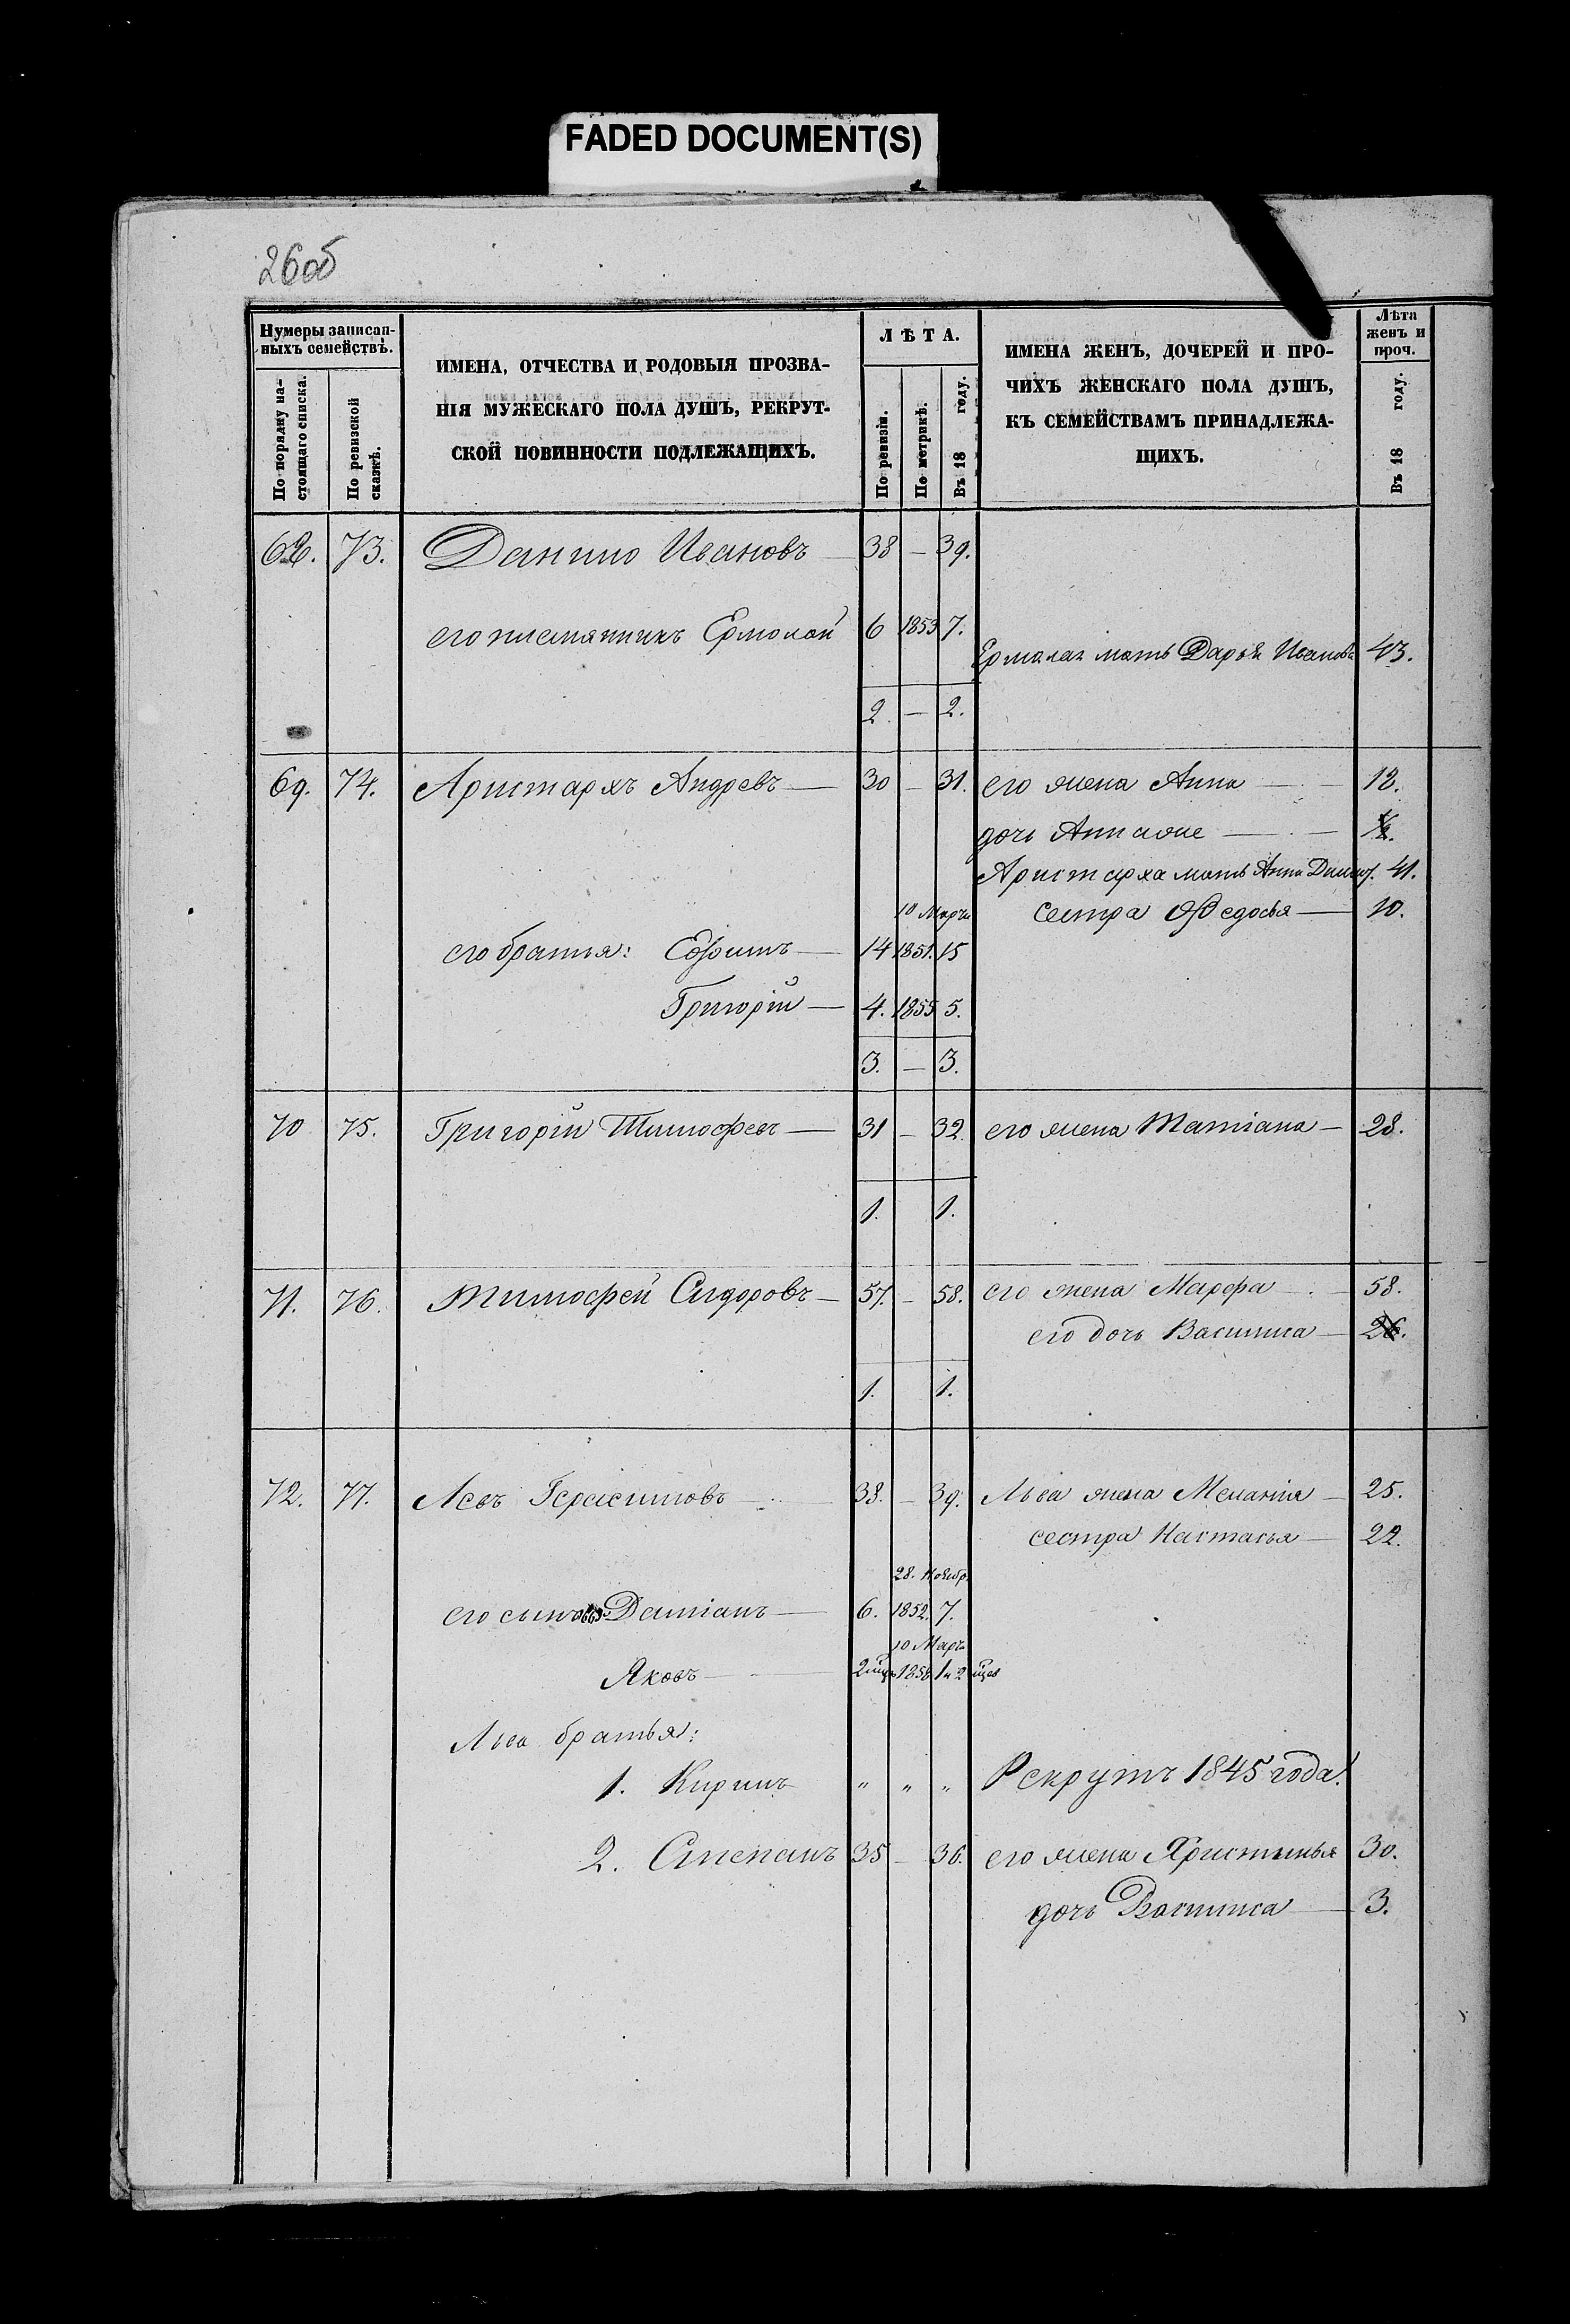 FADED DOCUMENT(S)
26об
Нумеры записан-
ныхъ семействъ.
По порядку на-
стоящаго списка.
По ревизской
сказкѣ.
ИМЕНА, ОТЧЕСТВА И РОДОВЫЯ ПРОЗВА-
НІЯ МУЖЕСКАГО ПОЛА ДУШЪ, РЕКРУТ-
СКОЙ ПОВИННОСТИ ПОДЛЕЖАЩИХЪ.
ЛѢТА.
По ревизіи.
По метрикѣ.
Въ 18 году.
ИМЕНА ЖЕНЪ, ДОЧЕРЕЙ И ПРО-
ЧИХЪ ЖЕНСКАГО ПОЛА ДУШЪ,
КЪ СЕМЕЙСТВАМЪ ПРИНАДЛЕЖА-
ЩИХЪ.
Лѣта
женъ и
проч.
Въ 18 году.
68. 73. Данило Ивановъ 38 — 39.
его племянникъ Ермолай 6 1853 7.
Ермолая мать Дарья Иванова 43.
2. — 2.
69. 74. Аристархъ Андревъ — 30 — 31. его жена Анна — 18.
дочь Анна же —
Аристарха мать Анна 41.
10 Марта сестра Федосья — 10.
его братья: Ефимъ — 14 1851. 15
Григорій — 4. 1855 5.
3. — 3.
70 75. Григорій Тимофеевъ — 31 — 32. его жена Татіана — 28.
1. 1.
71. 76. Тимофей Сидоровъ — 57. — 58. его жена Марфа — 58.
его дочь Василиса — 26.
1. 1.
72. 77. Левъ Герасимовъ — 38. — 39. Льва жена Меланія — 25.
сестра Настасья — 22.
28. Ноябр.
его сыновья: Даміанъ — 6. 1852. 7.
10 Марта
Яковъ — 2 мцъ 1858 1 и 2 мцев
Льва братья:
1. Кирилъ " " " Рекрутъ 1845 года.
2. Степанъ 35 — 36. его жена Христинья 30.
дочь Василиса — 3.